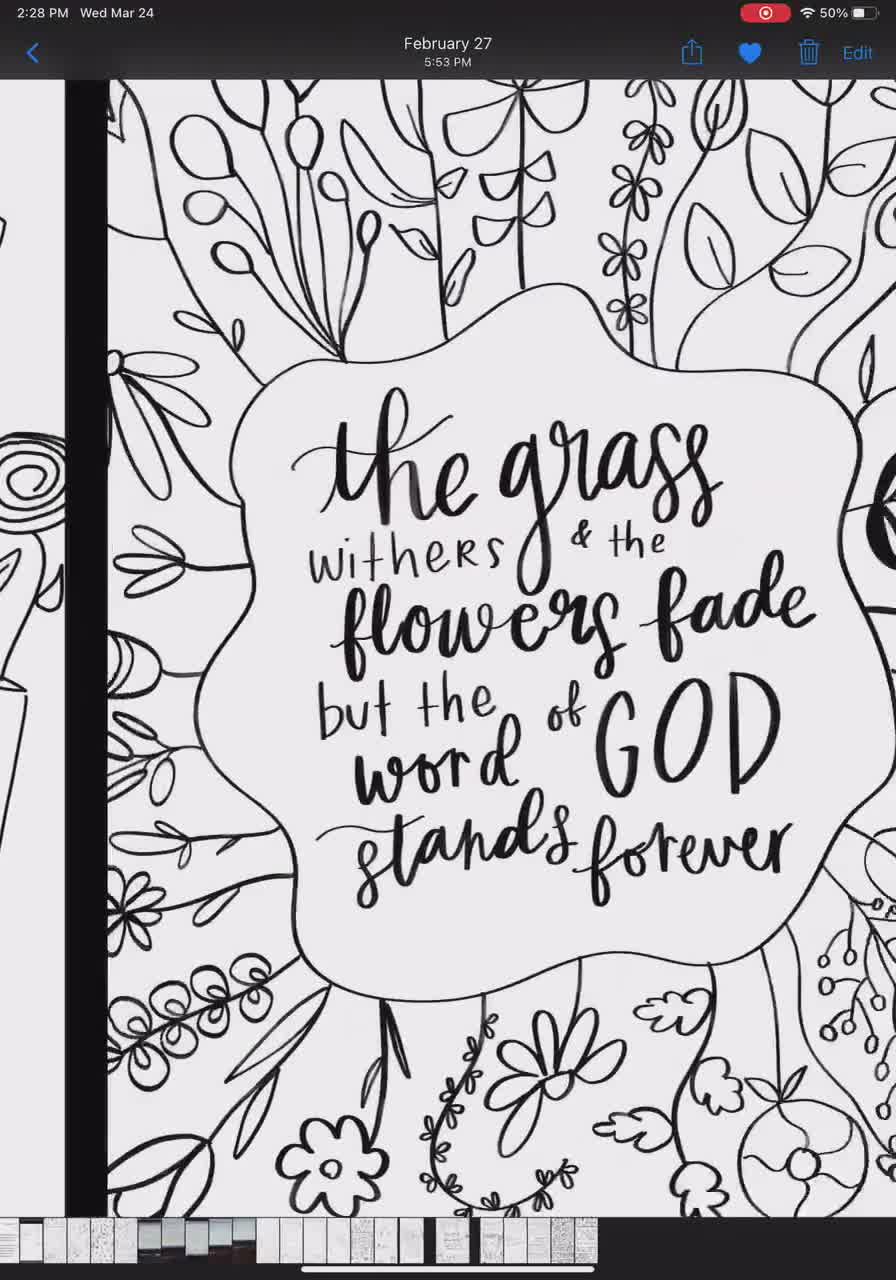 2:28 PM Wed Mar 24 50%
February 27
5:53 PM
Edit
the grass
withers & the
flowers fade
but the
word of GOD
stands forever